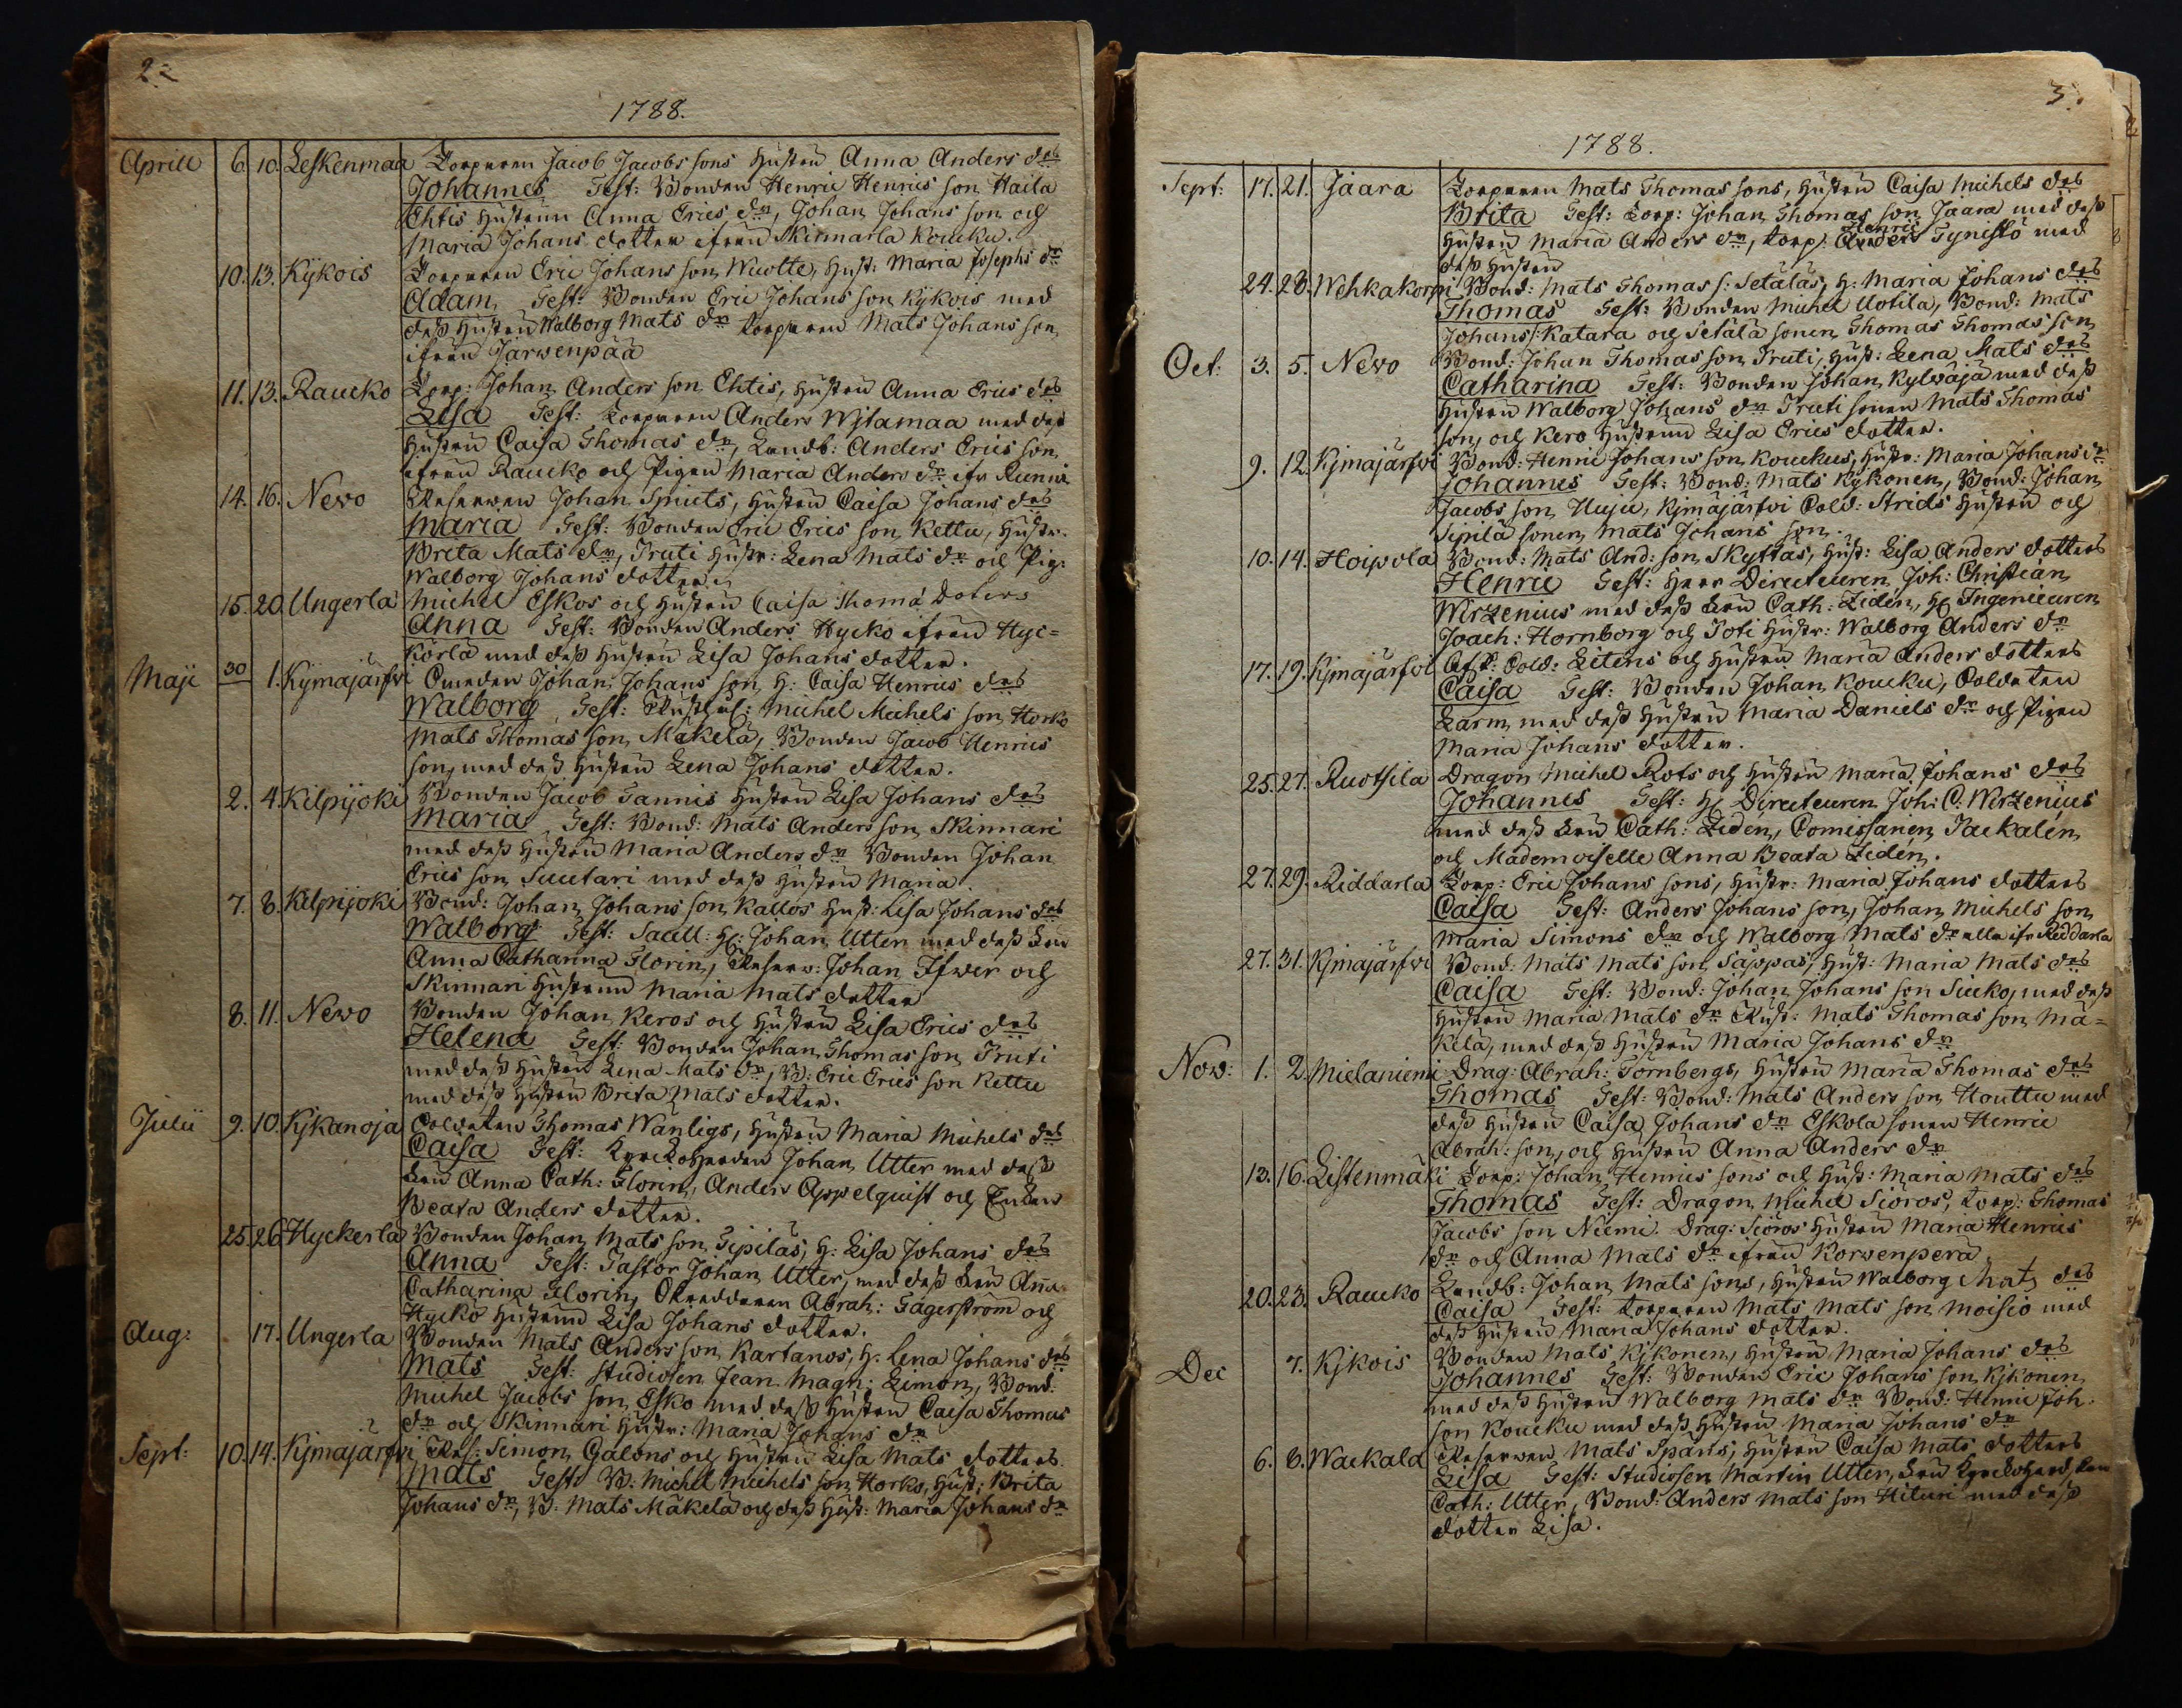 2:
1788.
Aprill 6. 10. Leskenmaa Torparen Jacob Jacobs sons hustru Anna Anders drs
Johannes Test: Bonden Henric Henrics son Haila
Ehtis hustrun Anna Erics dr, Johan Johans son och
Maria Johans dotter ifrån Skinnarla Koucku.
10. 13. Kÿkois Torparen Eric Johans son Wuolte, Hust: Maria Josephs dr
Adam Test: Bonden Eric Johans son Kÿkois med
dess hustru Walborg Mats dr torparen Mats Johans son
ifrån Järwenpää
11. 13. Raucko Torp: Johan Anders son Ehtis, hustru Anna Erics drs
Lisa Test: Torparen Anders Wÿlamaa med des
hustru Caisa Thomas dr, Landb: Anders Erics son
ifrån Raucko och Pigan Maria Anders dr ifr
14. 16. Nevo Reserven Johan Spiuts, hustru Caisa Johans drs
Maria Test: Bonden Eric Erics son Kettu, hustr.
Brita Mats dr, Truti hustr: Lena Mats dr och Pig:
Walborg Johans dotter
15. 20 Ungerla Michel Eskos och hustru Caisa Thoma Doters
Anna Test: Bonden Anders Hycko ifrån Hyc=
körla med dess hustru Lisa Johans dotter.
Maji 30 1. Kÿmajärfvi Smeden Johan Johans son, H: Caisa Henrics drs
Walborg Test: Michel Michels son Horko
Mats Thomas son Mäkelä, Bonden Jacob Henrics
son, med dess hustru Lena Johans dotter.
2. 4. Kilpijoki Bonden Jacob Tannis hustru Lisa Johans drs
Maria Test: Bond: Mats Anders son Skinnari
med dess hustru Maria Anders dr Bonden Johan
Erics son Suutari med dess hustru Maria.
7. 8. Kilpijoki Bond: Johan Johans son Kallos hust: Lisa Johans drs
Walborg Test: Sacell: H: Johan Utter med dess Fru
Anna Catharina Florin, Reserv: Johan Ifwer och
Skinnari hustrun Maria Mats dotter
8. 11. Nevo Bonden Johan Keros och hustru Lisa Erics drs
Helena Test: Bonden Johan Thomas son Truti
med dess hustru Lena Mats dr, B: Eric Erics son Kettu
med dess hustru Brita Mats dotter.
Julii 9. 10. Kÿkanoja Soldaten Thomas Wänligs, hustru Maria Michels drs
Caisa Test: Kyrckoherden Johan Utter med dess
Fru Anna Cath: Florin, Anders Appelquist och Enkan
Beata Anders dotter.
25. 26 Hyckerla Bonden Johan Mats son Sipiläs, H: Lisa Johans drs
Anna Test: Pastor Johan Utter, med dess Fru Anna
Catharina Florin, Skreddaren Abrah: Fagerström och
Hycko hustrun Lisa Johans dotter.
Aug: 17. Ungerla Bonden Mats Anders son Kartanos, H. Lena Johans drs
Mats Test: Studiosen Jean Magn: Limon, Bond:
Michel Jacobs son Esko med dess hustru Caisa Thomas
dr och Skinnari hustr: Maria Johans dr
Sept: 10. 14. Kÿmajärfvi Simon Galons och hustru Lisa Mats dotters
Mats Test: B: Michel Michels son Horko, Hust: Brita
Johans dr, B: Mats Mäkelä och dess hust: Maria Johans dr
3:
1788.
Sept: 17. 21. Jaara Torparen Mats Thomas sons, hustru Caisa Michels drs
Brita Test: Torp: Johan Thomas son Jaara med dess
Henric
hustru Maria Anders dr, torp: Anders Tynislö med
dess hustru
24. 28. Wehkakorpi Bond: Mats Thomas s: Setäläs, H: Maria Johans drs
Thomas Test: Bonden Michel Uotila, Bond: Mats
Johans s: Katara och Setälä sonen Thomas Thomas son
Oct: 3. 5. Nevo Bond: Johan Thomas son Truti, hust: Lena Mats drs
Catharina Test: Bonden Johan Kylwäjä med dess
hustru Walborg Johans dr Truti sonen Mats Thomas
son, och Kero hustrun Lisa Erics dotter.
9. 12. Kjmajärfvi Bond: Henric Johans son Kouckus, hustr: Maria Johans dr
Johannes Test: Bond: Mats Kÿkonen, Bond: Johan
Jacobs son Uuju, Kjmäjärfvi Sold: Strids hustru och
Sipilä sonen Mats Johans son.
10. 14. Hoipola Bond: Mats And: son Skyttäs, hust: Lisa Anders dotters
Henric Test: Herr Directeuren Joh: Christian
Wirzenius med dess Fru Cath: Zidén, H: Ingenieuren
Joach: Hornborg och Poti hustr: Walborg Anders dr
17. 19. Kjmajärfvi Afsk: Sold: Litens och hustru Maria Anders dotters
Caisa Test: Bonden Johan Koucku, Soldaten
Larm, med dess hustru Maria Daniels dr och Pigan
Maria Johans dotter.
25. 27. Ruotsila Dragon Michel Rots och hustru Maria Johans drs
Johannes Test: H: Directeuren Joh: C: Wirzenius
med dess Fru Cath: Zidén, Comissarien Jackalén
och Mademoiselle Anna Beata Zidén.
27. 29. Riddarla Torp: Eric Johans sons, hustr: Maria Johans dotters
Caisa Test: Anders Johans son, Johan Michels son
Maria Simons dr och Walborg Mats dr alla ifr Riddarla
27. 31. Kjmajärfvi Bond: Mats Mats son Säppäs, hust: Maria Mats drs
Caisa Test: Bond: Johan Johans son Siuko, med dess
hustru Maria Mats dr Rust: Mats Thomas son Mä=
kelä, med dess hustru Maria Johans dr
Nov: 1. 2. Mielaniemi Drag: Abrah: Törnbergs, hustru Maria Thomas drs
Thomas Test: Bond: Mats Anders son Houttu med
dess hustru Caisa Johans dr Eskola sonen Henric
Abrah: son, och hustru Anna Anders dr
13. 16. Listenmäki Torp: Johan Henrics sons och hust: Maria Mats drs
Thomas Test: Dragon Michel Sjöros, torp: Thomas
Jacobs son Niemi. Drag: Sjöros hustru Maria Henrics
dr och Anna Mats dr ifrån Korwenperä
20. 23. Raucko Landb: Johan Mats sons, hustru Walborg Mats drs
Caisa Test: torparen Mats Mats son Moisio med
dess hustru Maria Johans dotter.
Dec 7. Kjkois Bonden Mats Kjkonen, hustru Maria Johans drs
Johannes Test: Bonden Eric Johans son Kjkonen
med dess hustru Walborg Mats dr Bond: Henric Joh:
son Koucku med dess hustru Maria Johans dr
6. 8. Wackala Reserven Mats Späns, hustru Caisa Mats dotters
Lisa Test: Studiosen Martin Utter,
Cath: Utter, Bond: Anders Mats son Hituri med dess
dotter Lisa.